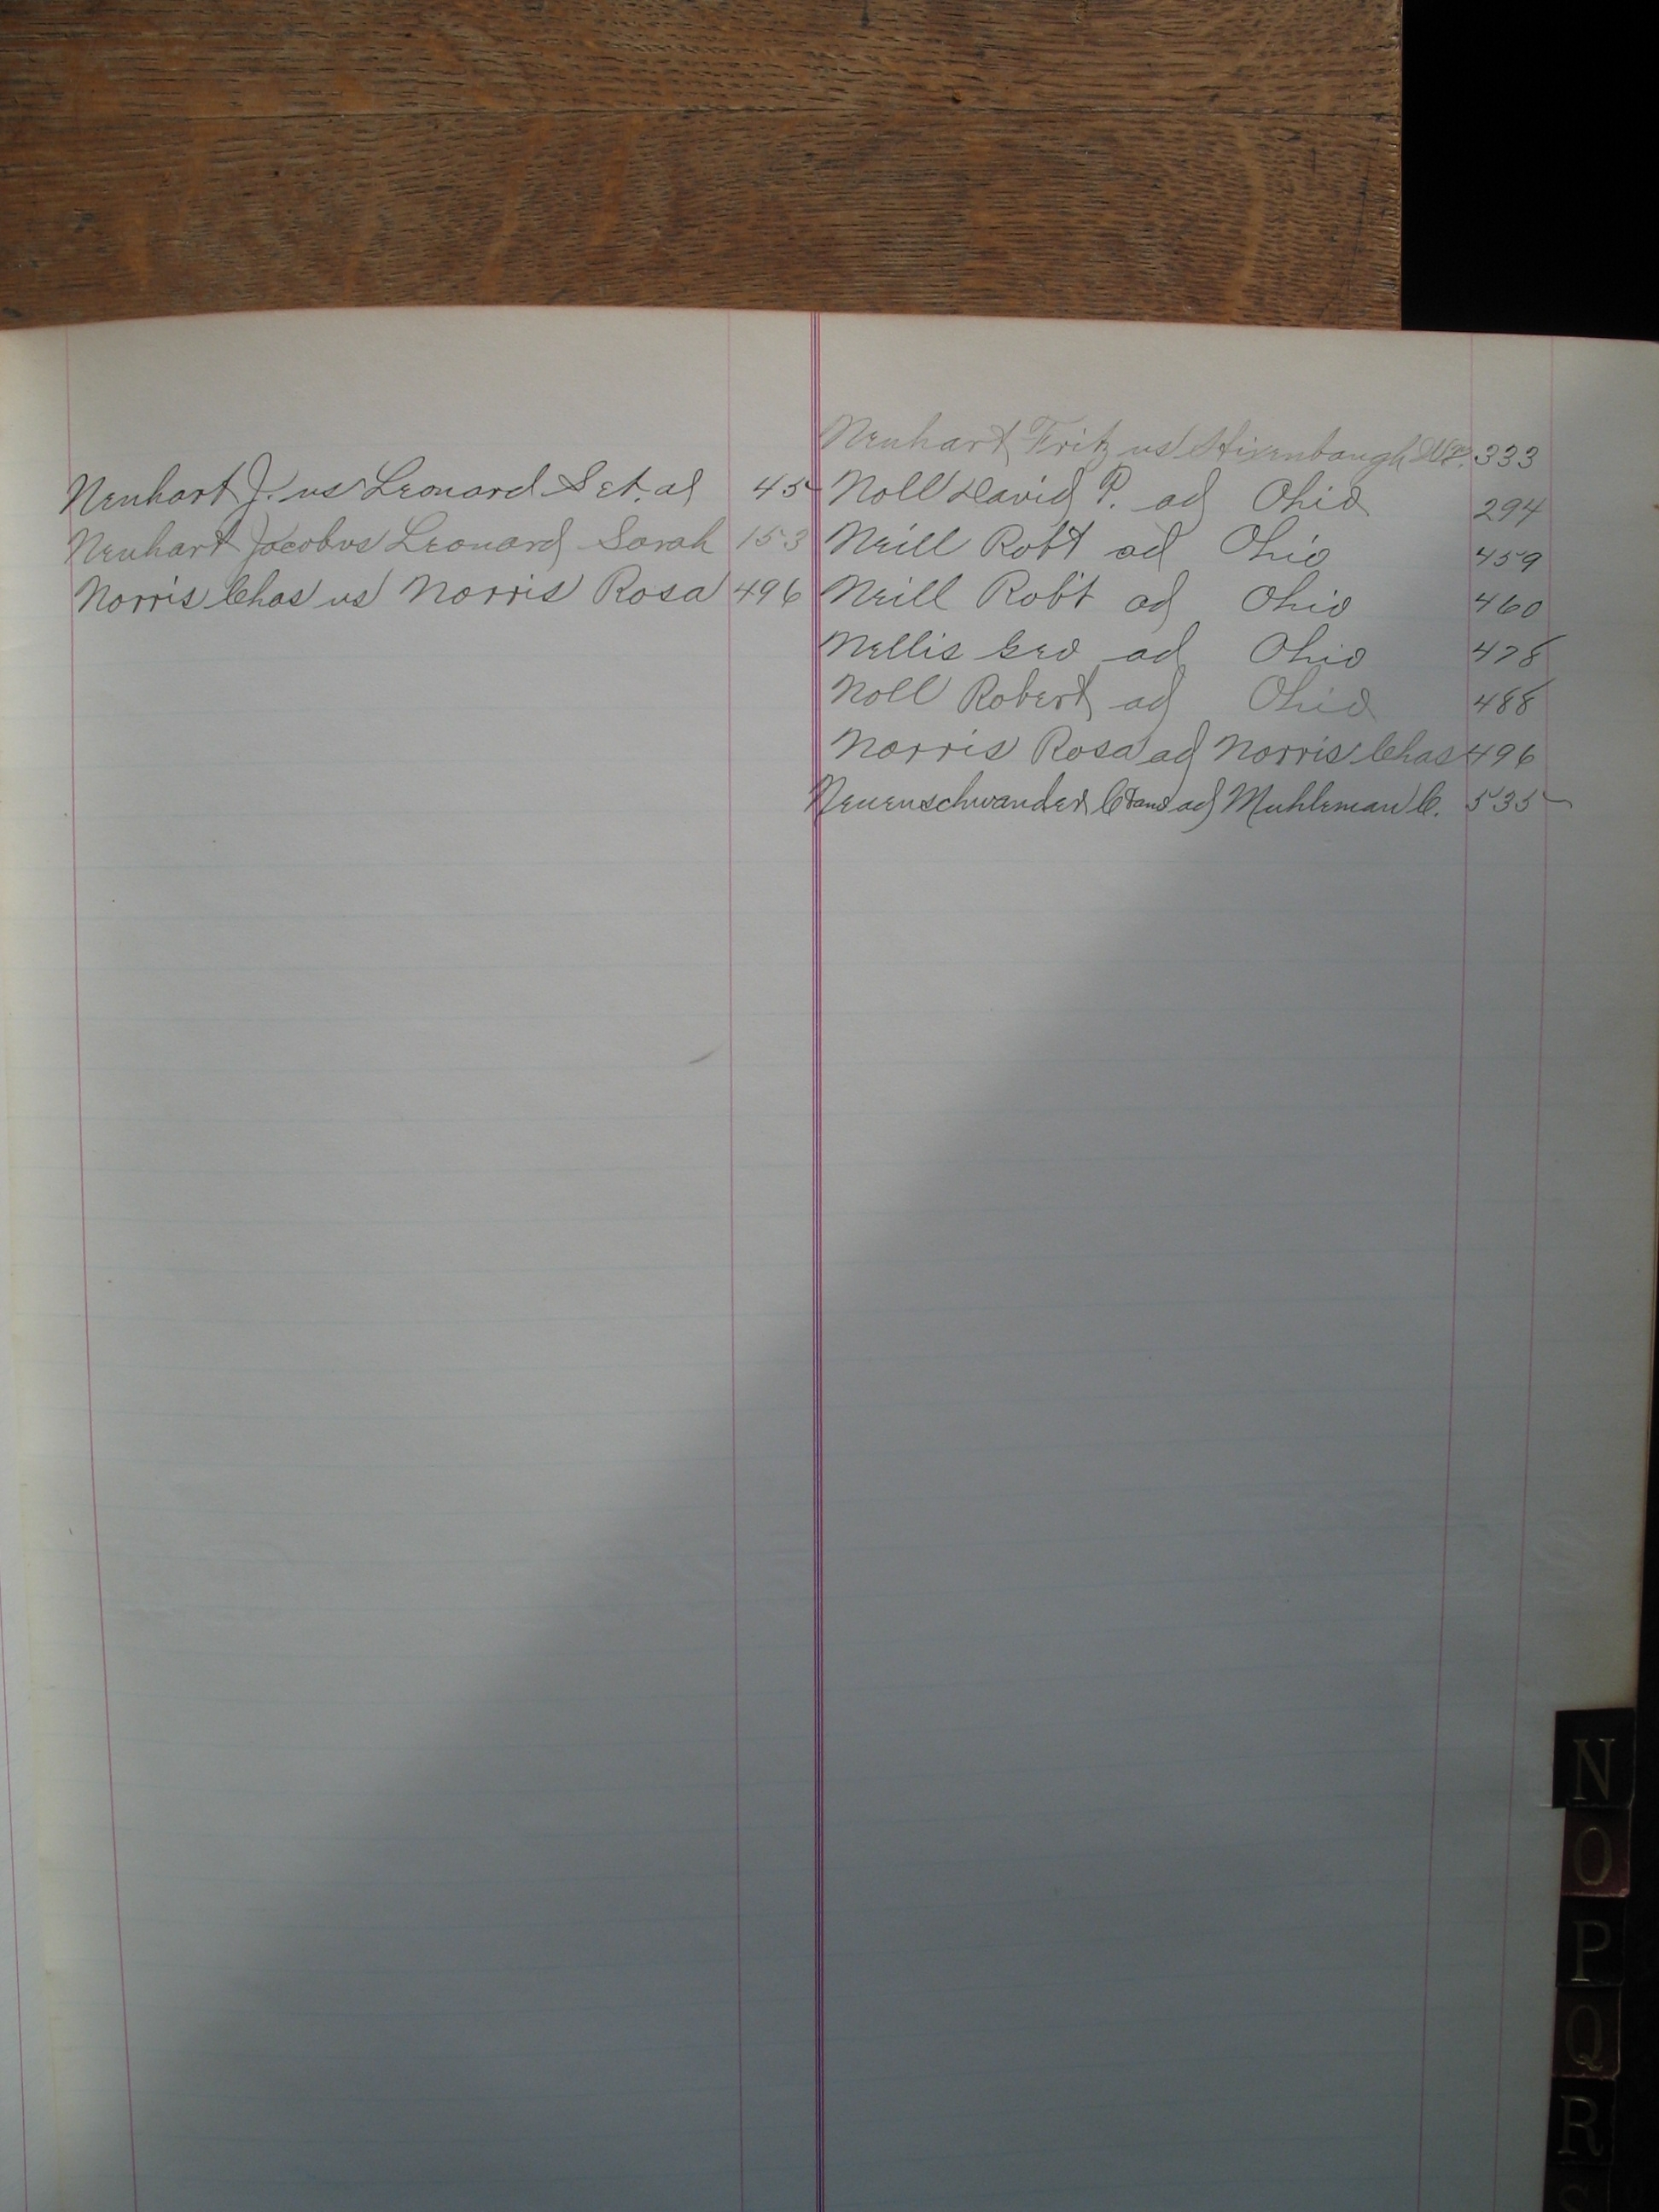 Neuhart J. vs Leonard S et. al 45
Neuhart Jacob vs Leonard Sarah 153
Norris Chas vs Norris Rosa 496
Neuhart Fritz vs Stixenbaugh Wm. 333
Noll David P. ad Ohio 294
Neill Robt ad Ohio 459
Neill Robt ad Ohio 460
Nellis Geo ad Ohio 478
Noll Robert ad Ohio 488
Norris Rosa ad Norris Chas 496
Neuenschwander ad Muhleman C. 535
N
O
P
Q
R
S